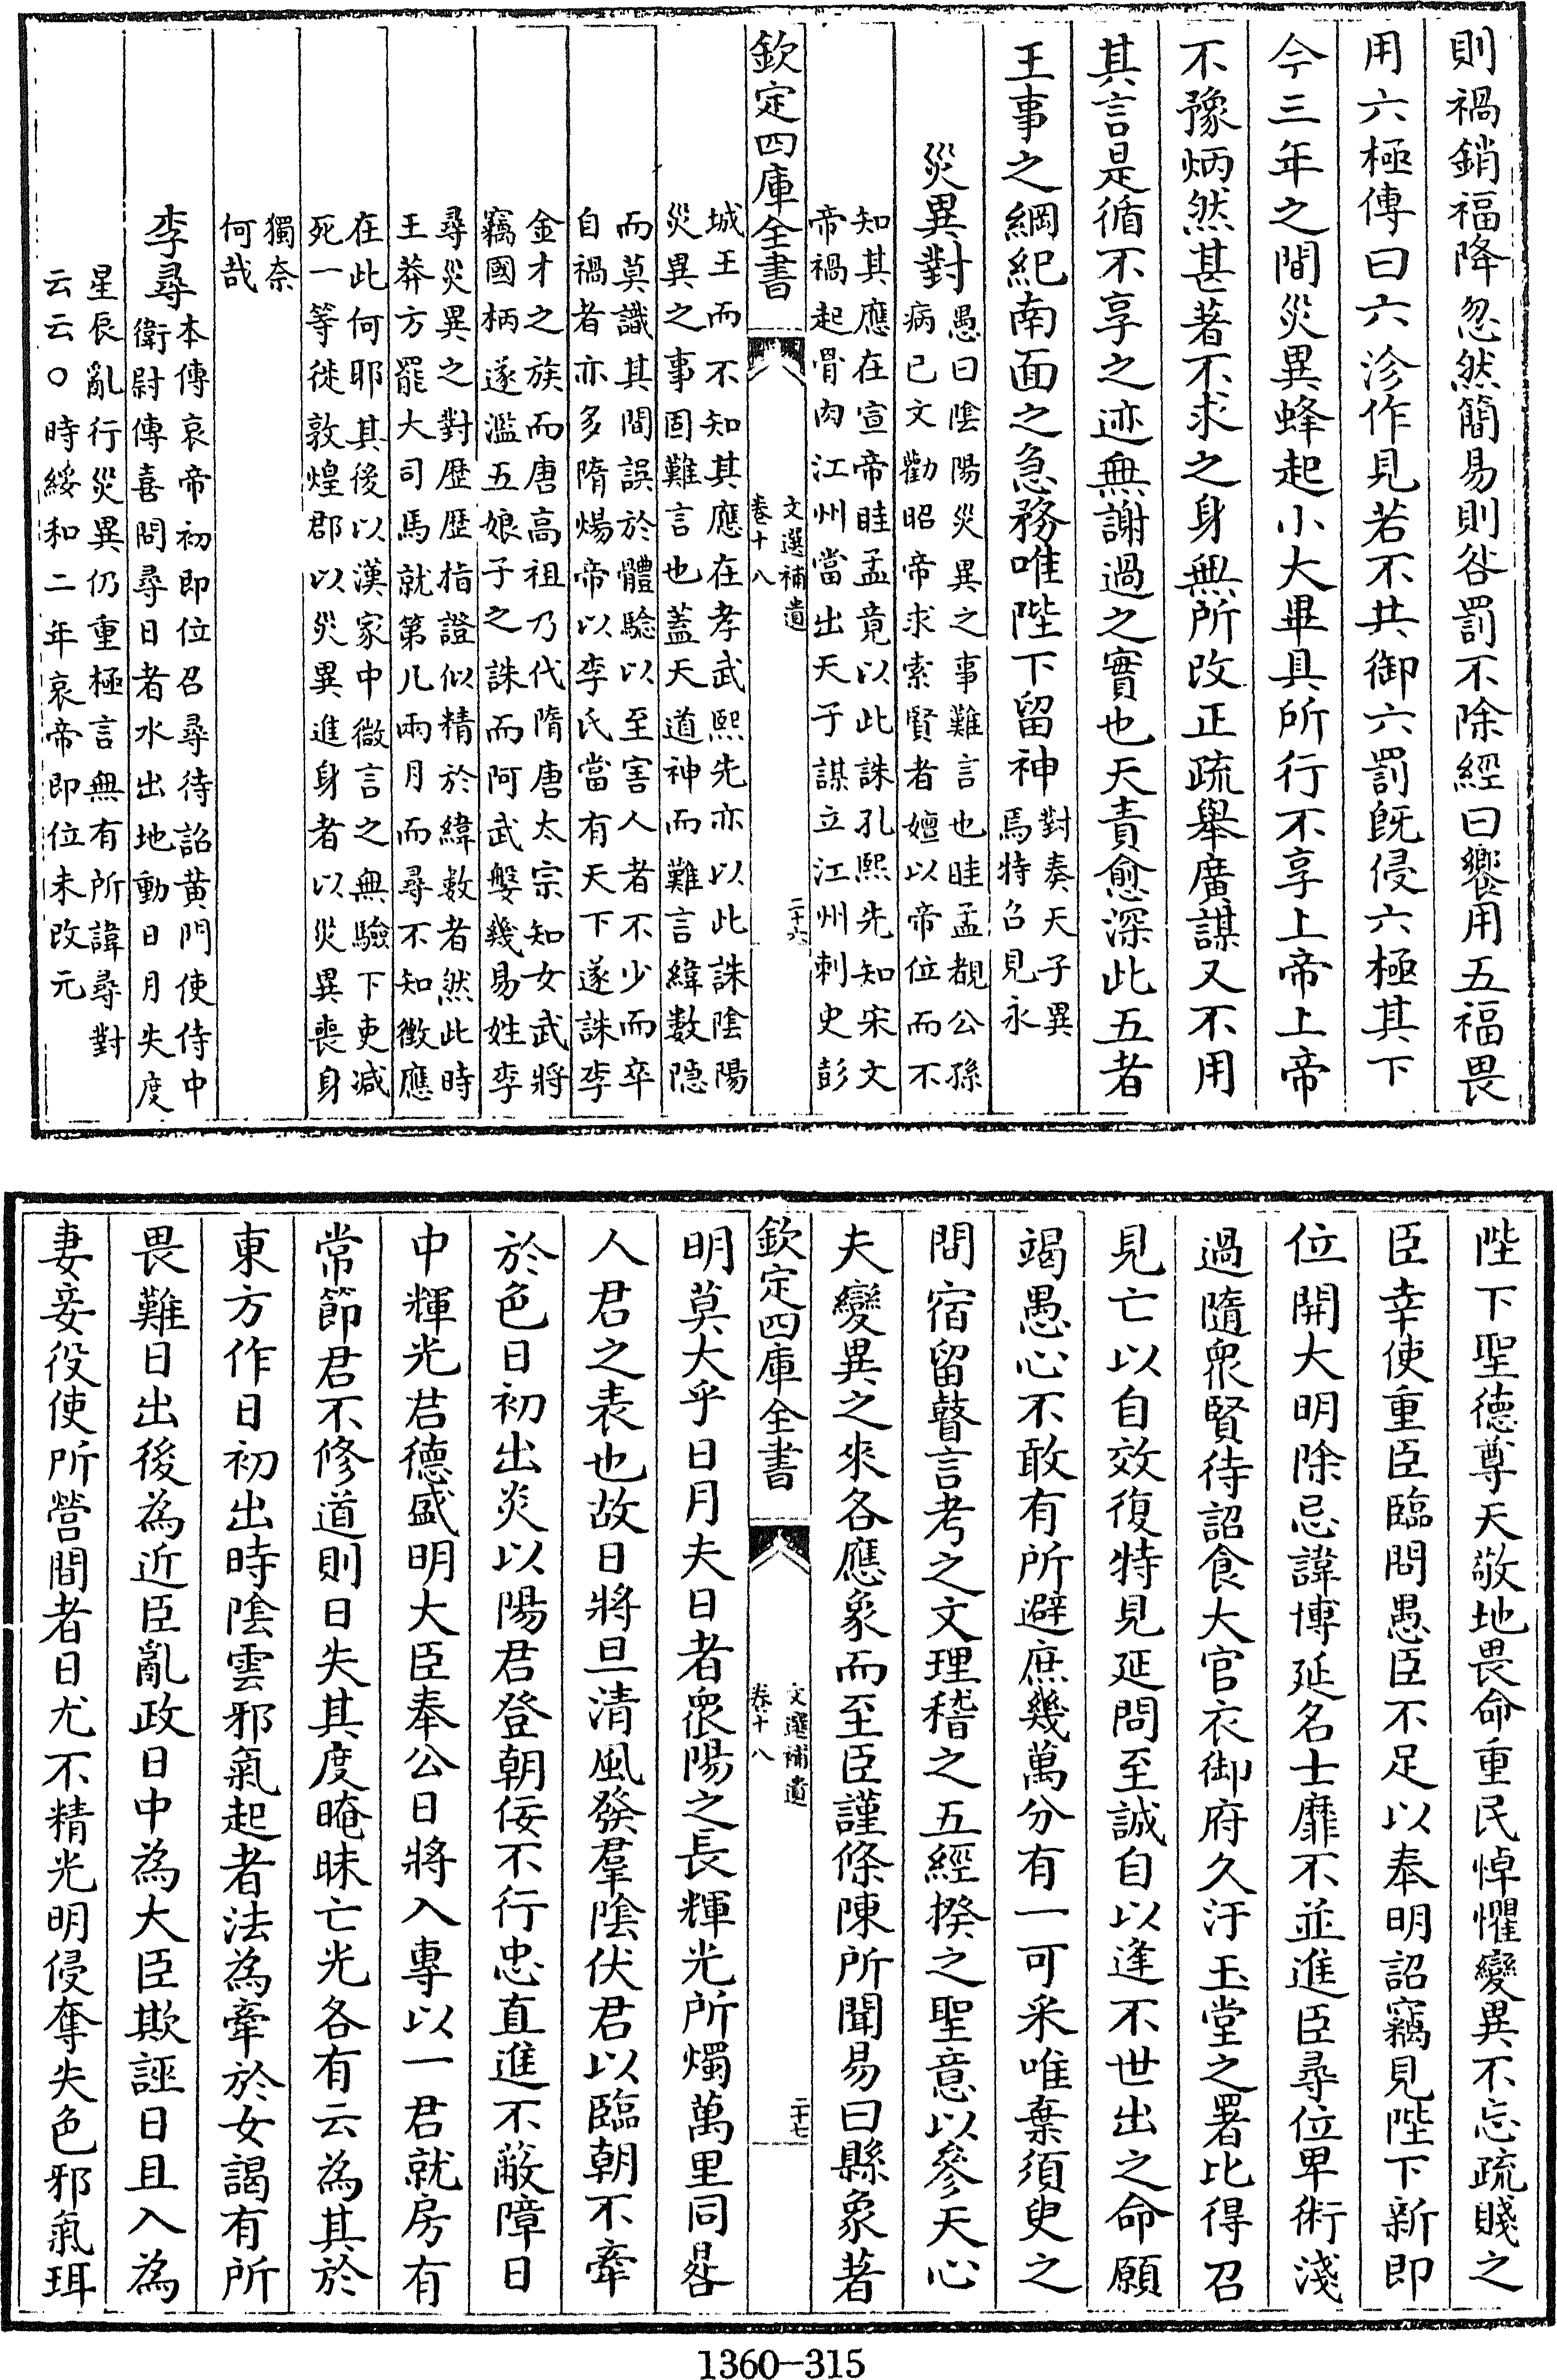 則禍銷福降忽然簡易則咎罰不除經曰饗用五福畏
用六極傳曰六沴作見若不共御六罰既侵六極其下
今三年之間災異蜂起小大畢具所行不享上帝上帝
不豫炳然甚著不求之身無所改正疏舉廣謀又不用
其言是循不享之迹無謝過之實也天責愈深此五者
王事之綱紀南面之急務唯陛下留神
對奏天子異
焉特召見永
災異對
愚曰陰陽災異之事難言也眭孟覩公孫
病已文勸昭帝求索賢者嬗以帝位而不
知其應在宣帝眭孟竟以此誅孔熙先知宋文
帝禍起骨肉江州當出天子謀立江州刺史彭
欽定四庫全書
文選補遺
卷十八
二十六
城王而不知其應在孝武熙先亦以此誅陰陽
災異之事固難言也蓋天道神而難言緯數隱
而莫識其間誤於體驗以至害人者不少而卒
自禍者亦多隋煬帝以李氏當有天下遂誅李
金才之族而唐高祖乃代隋唐太宗知女武將
竊國柄遂濫五娘子之誅而阿武婜幾易姓李
尋災異之對歷歷指證似精於緯數者然此時
王莽方罷大司馬就第凡兩月而尋不知徵應
在此何耶其後以漢家中微言之無驗下吏減
死一等徙敦煌郡以災異進身者以災異喪身
獨奈
何哉
李尋
本傳哀帝初即位召尋待詔黃門使侍中
衛尉傅喜問尋日者水出地動日月失度
星辰亂行災異仍重極言無有所諱尋對
云云○時綏和二年哀帝即位未改元
陛下聖德尊天敬地畏命重民悼懼變異不忘疏賤之
臣幸使重臣臨問愚臣不足以奉明詔竊見陛下新即
位開大明除忌諱博延名士靡不並進臣尋位卑術淺
過隨衆賢待詔食大官衣御府久汙玉堂之署比得召
見亡以自效復特見延問至誠自以逢不世出之命願
竭愚心不敢有所避庶幾萬分有一可采唯棄須臾之
間宿留瞽言考之文理稽之五經揆之聖意以參天心
夫變異之來各應象而至臣謹條陳所聞易曰縣象著
欽定四庫全書
文選補遺
卷十八
二十七
明莫大乎日月夫日者衆陽之長輝光所燭萬里同晷
人君之表也故日將旦清風發羣陰伏君以臨朝不牽
於色日初出炎以陽君登朝佞不行忠直進不蔽障日
中輝光君德盛明大臣奉公日將入專以一君就房有
常節君不修道則日失其度晻昧亡光各有云為其於
東方作日初出時陰雲邪氣起者法為牽於女謁有所
畏難日出後為近臣亂政日中為大臣欺誣日且入為
妻妾役使所營間者日尤不精光明侵奪失色邪氣珥
1360-315